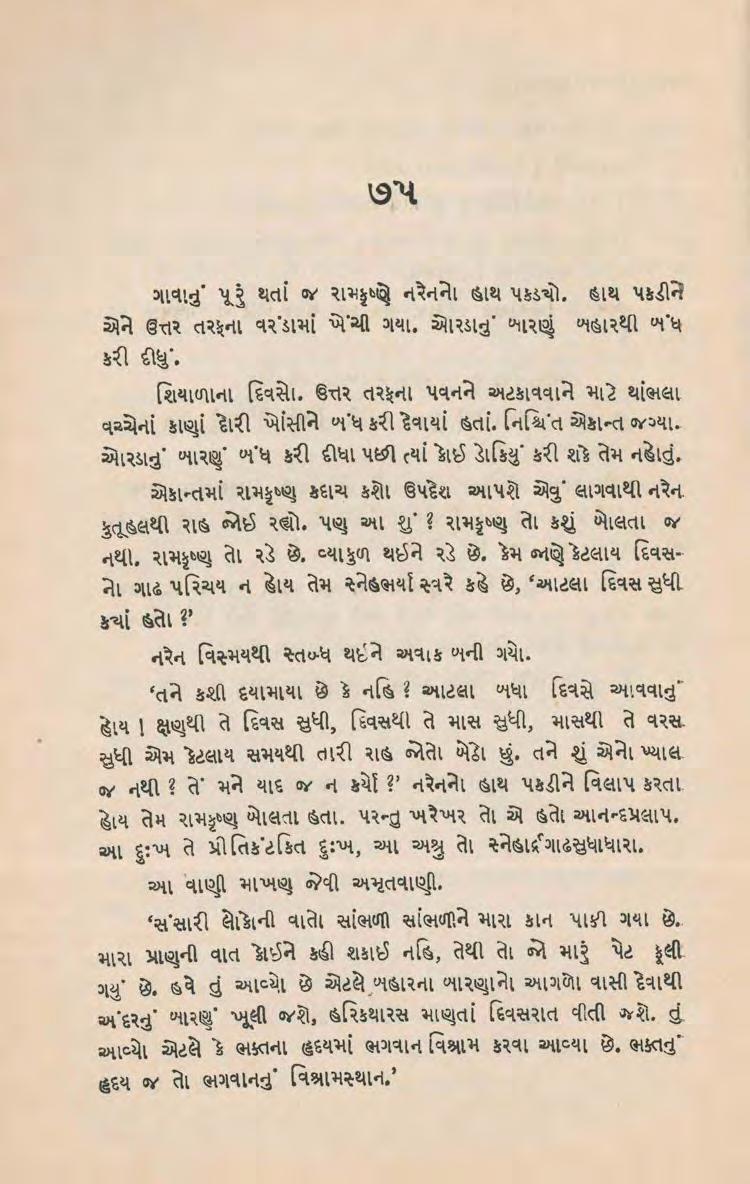 ૭૫
ગાવાનું પૂરું થતાં જ રામકૃષ્ણે નરેનનો હાથ પકડ્યો. હાથ પકડીને
એને ઉત્તર તરફના વરંડામાં ખેંચી ગયા. ઓરડાનું બારણું બહારથી બંધ
કરી દીધું.
શિયાળાના દિવસો. ઉત્તર તરફના પવનને અટકાવવાને માટે થાંભલા
વચ્ચેનાં કાણાં દોરી ખોંસીને બંધ કરી દેવાયાં હતાં. નિશ્ચિંત એકાન્ત જગ્યા.
ઓરડાનું બારણું બંધ કરી દીધા પછી ત્યાં કોઈ ડોકિયું કરી શકે તેમ નહોતું.
એકાન્તમાં રામકૃષ્ણ કદાચ કશો ઉપદેશ આપશે એવું લાગવાથી નરેન
કુતૂહલથી રાહ જોઈ રહ્યો. પણ આ શું ? રામકૃષ્ણ તો કશું બોલતા જ
નથી. રામકૃષ્ણ તો રડે છે. વ્યાકુળ થઈને રડે છે. કેમ જાણે કેટલાય દિવસ-
નો ગાઢ પરિચય ન હોય તેમ સ્નેહભર્યા સ્વરે કહે છે, ‘આટલા દિવસ સુધી
ક્યાં હતો ?’
નરેન વિસ્મયથી સ્તબ્ધ થઇને અવાક બની ગયો.
‘તને કશી દયામાયા છે કે નહિ ? આટલા બધા દિવસે આવવાનું
હોય ! ક્ષણથી તે દિવસ સુધી, દિવસથી તે માસ સુધી, માસથી તે વરસ
સુધી એમ કેટલાય સમયથી તારી રાહ જોતો બેઠો છું. તને શું એનો ખ્યાલ
જ નથી ? તેં મને યાદ જ ન કર્યો ?’ નરેનનો હાથ પકડીને વિલાપ કરતા
હોય તેમ રામકૃષ્ણ બોલતા હતા. પરન્તુ ખરેખર તો એ હતો આનન્દપ્રલાપ.
આ દુઃખ તે પ્રીતિકંટકિત દુઃખ, આ અશ્રુ તો સ્નેહાર્દ્રગાઢસુધાધારા.
આ વાણી માખણ જેવી અમૃતવાણી.
‘સંસારી લોકોની વાતો સાંભળી સાંભળીને મારા કાન પાકી ગયા છે.
મારા પ્રાણની વાત કોઈને કહી શકાઈ નહિ, તેથી તો જો મારું પેટ ફૂલી
ગયું છે. હવે તું આવ્યો છે એટલે બહારના બારણાનો આગળો વાસી દેવાથી
અંદરનું બારણું ખૂલી જશે, હરિકથારસ માણતાં દિવસરાત વીતી જશે. તું
આવ્યો એટલે કે ભક્તના હૃદયમાં ભગવાન વિશ્રામ કરવા આવ્યા છે. ભક્તનું
હૃદય જ તો ભગવાનનું વિશ્રામસ્થાન.’